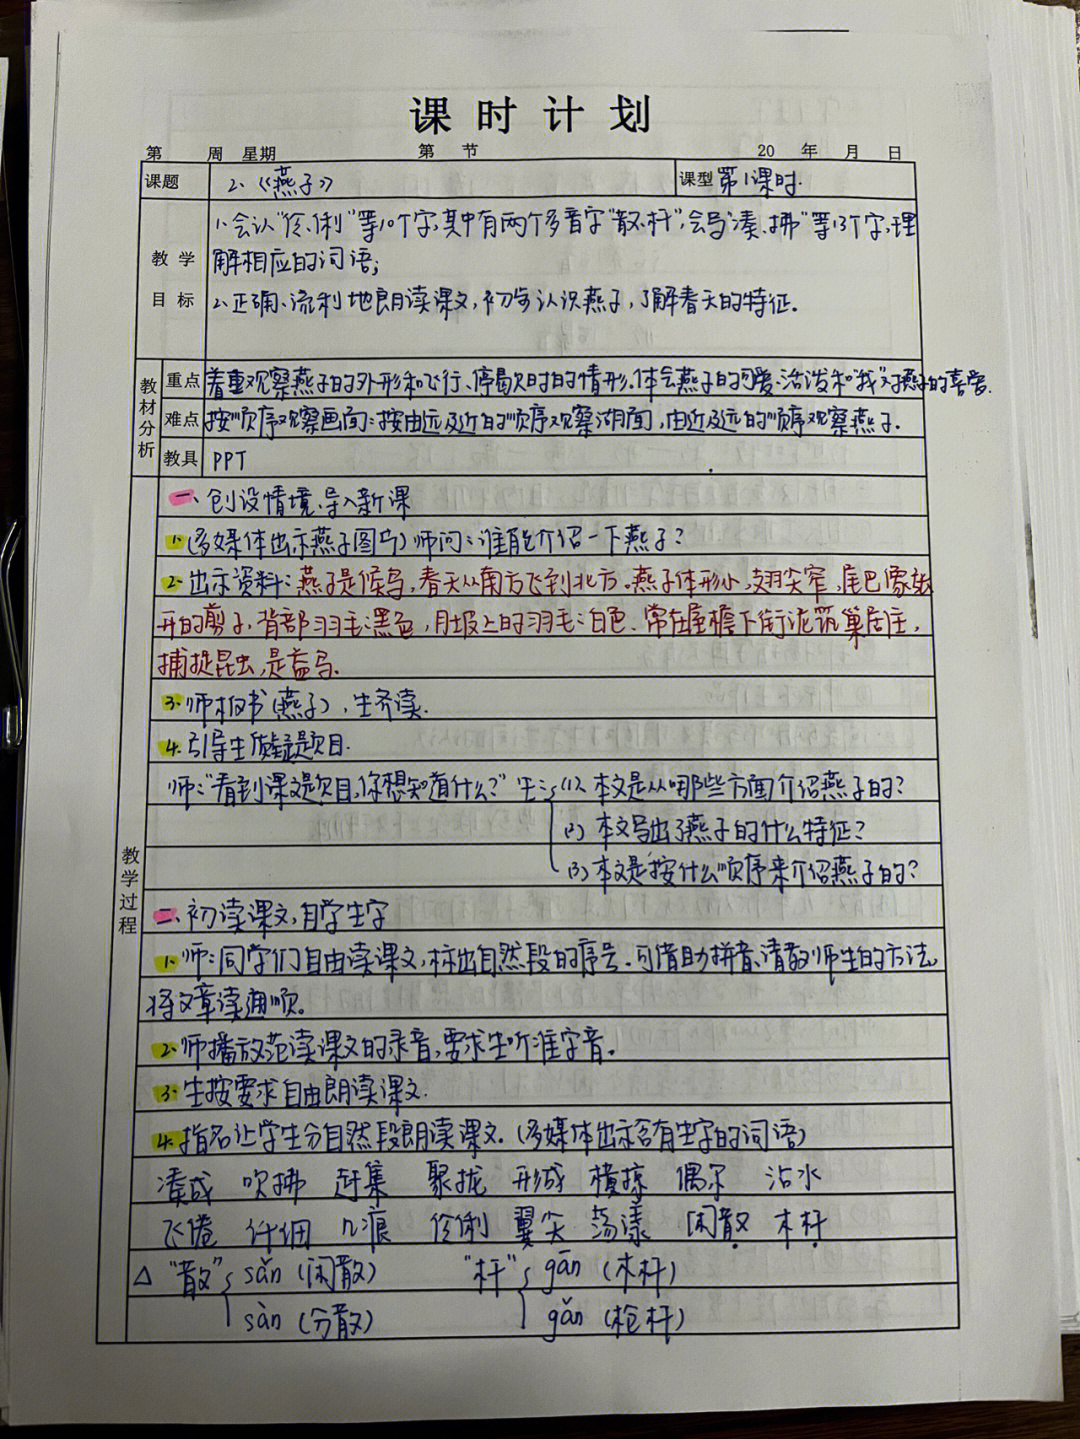 课时计划
第 周 星期 第 节 20 年 月 日
课题 2、《燕子》 课型 第1课时.
教学目标
1、会认“伶、俐”等10个字,其中有两个多音字“散、杆”,会写“凑、拂”等13个字,理
解相应的词语;
2、正确、流利地朗读课文,初步认识燕子,了解春天的特征.
教材分析
重点 着重观察燕子的外形和飞行、停歇时的情形.体会燕子的可爱、活泼和“我”对燕子的喜爱.
难点 按顺序观察画面:按由远及近的顺序观察湖面,由近及远的顺序观察燕子.
教具 PPT
教学过程
一、创设情境,导入新课
1.(多媒体出示燕子图鸟)师问:谁能介绍一下燕子?
2.出示资料:燕子是候鸟,春天从南方飞到北方.燕子体形小,翅尖窄,尾巴像散
开的剪子,背部羽毛黑色,肚圾上的羽毛白色.常在屋檐下衔泥筑巢居住,
捕捉昆虫,是益鸟.
3.师板书(燕子),生齐读.
4.引导生质疑题目.
师:“看到课文题目,你想知道什么?”生:(1)、本文是从哪些方面介绍燕子的?
(2)本文写出了燕子的什么特征?
(3)本文是按什么顺序来介绍燕子的?
二、初读课文,自学生字
1.师:同学们自由读课文,标出自然段的序号.可借助拼音、请教师生的方法,
将文章读通顺。
2.师播放范读课文的录音,要求生听准字音。
3.生按要求自由朗读课文.
4.指名让学生分自然段朗读课文.(多媒体出示含有生字的词语)
凑成 吹拂 赶集 聚拢 形成 横掠 偶尔 沾水
飞倦 纤细 几痕 伶俐 翼尖 荡漾 闲散 木杆
△“散” sǎn (闲散) “杆” gān (木杆)
sàn (分散) gǎn (枪杆)